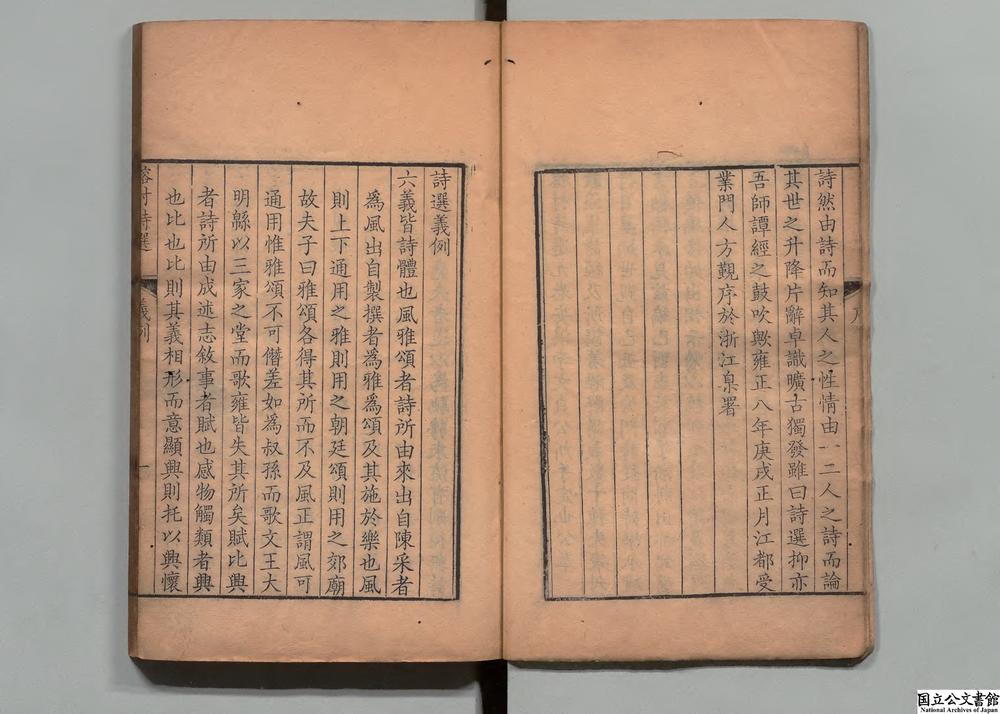 詩然由詩而知其人之性情由一二人之詩而論
其世之升降片辭卓識曠古獨發雖曰詩選抑亦
吾師譚經之鼓吹歟雍正八年庚戌正月江都受
業門人方覲序於浙江臬署
詩選義例
六義皆詩體也風雅頌者詩所由來出自陳采者
爲風出自製撰者爲雅爲頌及其施於樂也風
則上下通用之雅則用之朝廷頌則用之郊廟
故夫子曰雅頌各得其所而不及風正謂風可
通用惟雅頌不可僭差如爲叔孫而歌文王大
明緜以三家之堂而歌雍皆失其所矣賦比興
者詩所由成述志敘事者賦也感物觸類者興
也比也比則其義相形而意顯興則托以興懷
榕村詩選
義例
一
国立公文書館
National Archives of Japan